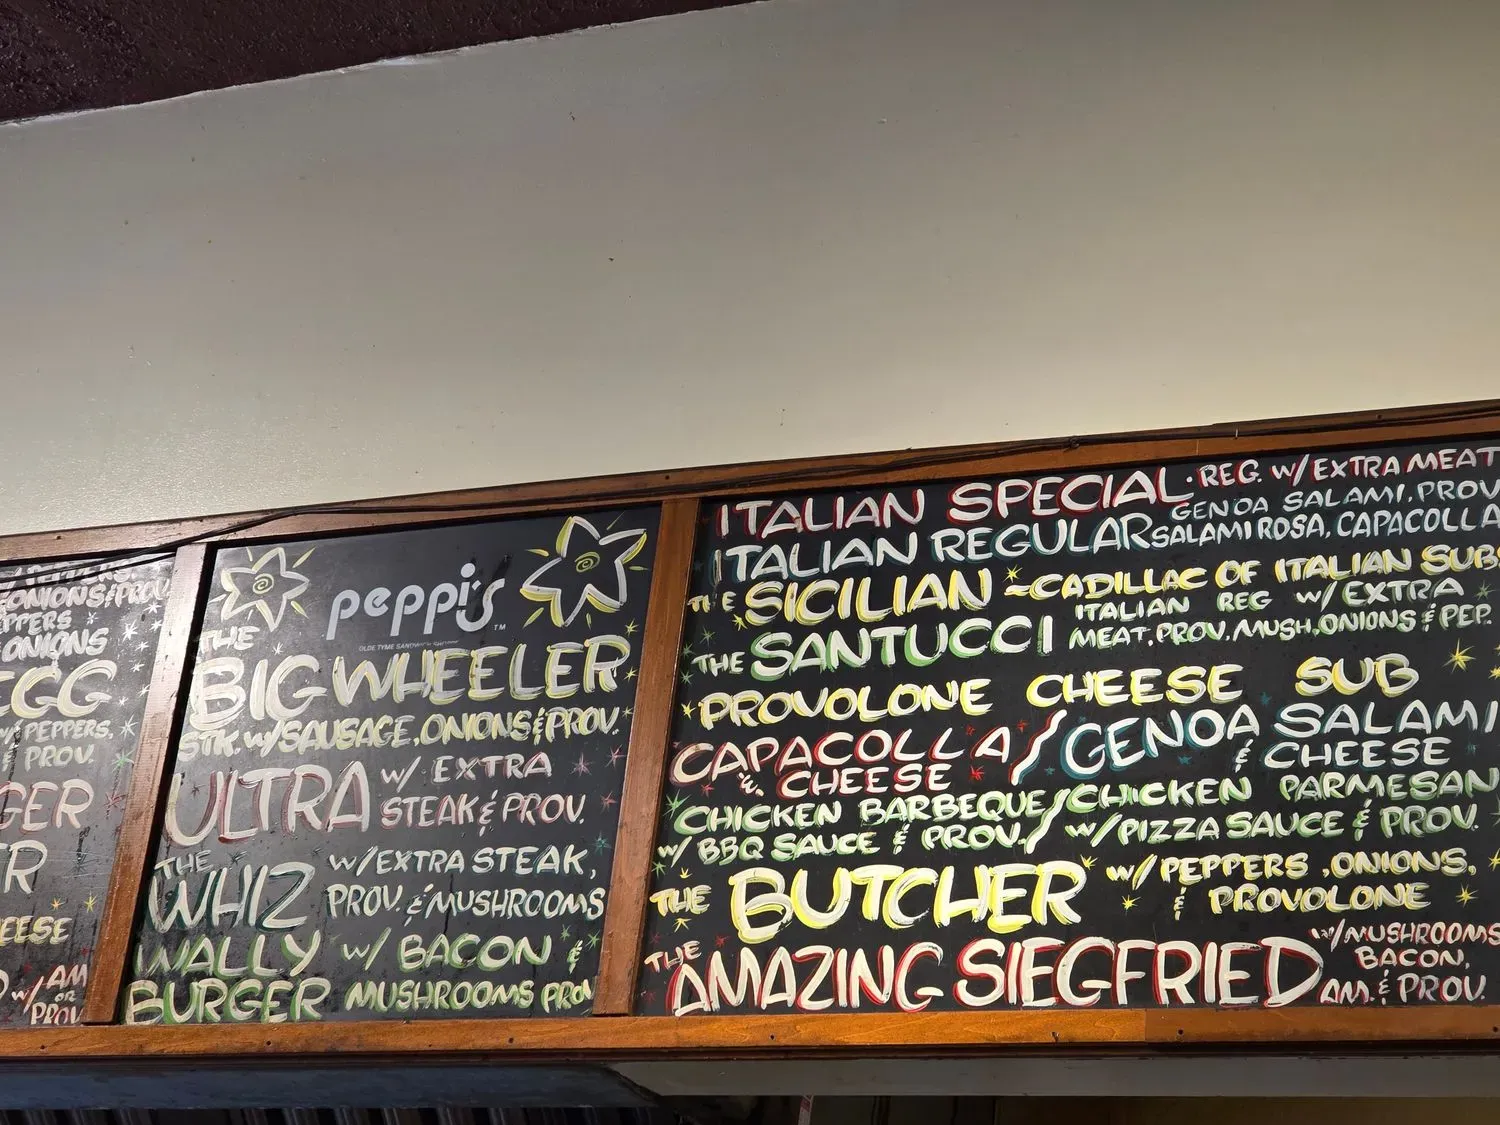 PEPPERS,
ONIONS & PROV.
PEPPERS
ONIONS
EGG
W/ PEPPERS,
& PROV.
GER
ER
CHEESE
W/ AM
OR
PROV
peppi's
TM
OLDE TYME SANDWICH
THE
BIG WHEELER
STK. W/SAUSAGE, ONIONS & PROV.
ULTRA W/ EXTRA
STEAK & PROV.
THE
WHIZ W/EXTRA STEAK,
PROV. & MUSHROOMS
WALLY W/ BACON &
BURGER MUSHROOMS PROV
ITALIAN SPECIAL · REG. W/EXTRA MEAT
GENOA SALAMI, PROV
ITALIAN REGULAR SALAMI ROSA, CAPACOLLA
THE SICILIAN ~CADILLAC OF ITALIAN SUBS
THE SANTUCCI ITALIAN REG W/ EXTRA
MEAT, PROV, MUSH, ONIONS & PEP.
PROVOLONE CHEESE SUB
CAPACOLLA / GENOA SALAMI
& CHEESE & CHEESE
CHICKEN BARBEQUE / CHICKEN PARMESAN
W/ BBQ SAUCE & PROV. / W/PIZZA SAUCE & PROV.
THE BUTCHER W/ PEPPERS, ONIONS,
& PROVOLONE
THE AMAZING SIEGFRIED W/MUSHROOMS
BACON,
AM. & PROV.